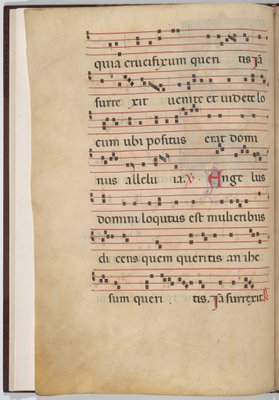 quia crucifixum queri tis Ja
surre xit uenite et uidete lo
cum ubi positus erat domi
nus allelu ia. V Ange lus
domini locutus est mulieribus
di cens quem queritis an ihe
sum queri tis. Ja surrexit